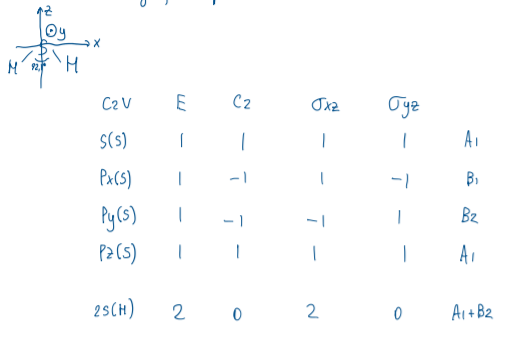 z
y
x
H 92° H
C2V E C2 σxz σyz
S(S) 1 1 1 1 A1
Px(S) 1 -1 1 -1 B1
Py(S) 1 -1 -1 1 B2
Pz(S) 1 1 1 1 A1
2S(H) 2 0 2 0 A1+B2